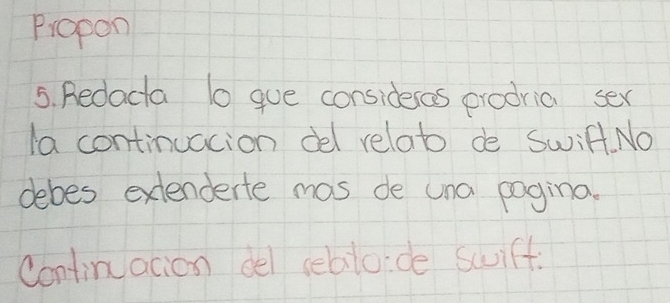 Propon
5. Redacta lo que consideras prodria ser
la continuacion del relato de Swift. No
debes extenderte mas de una pagina.
Continuacion del relato: de Swift: